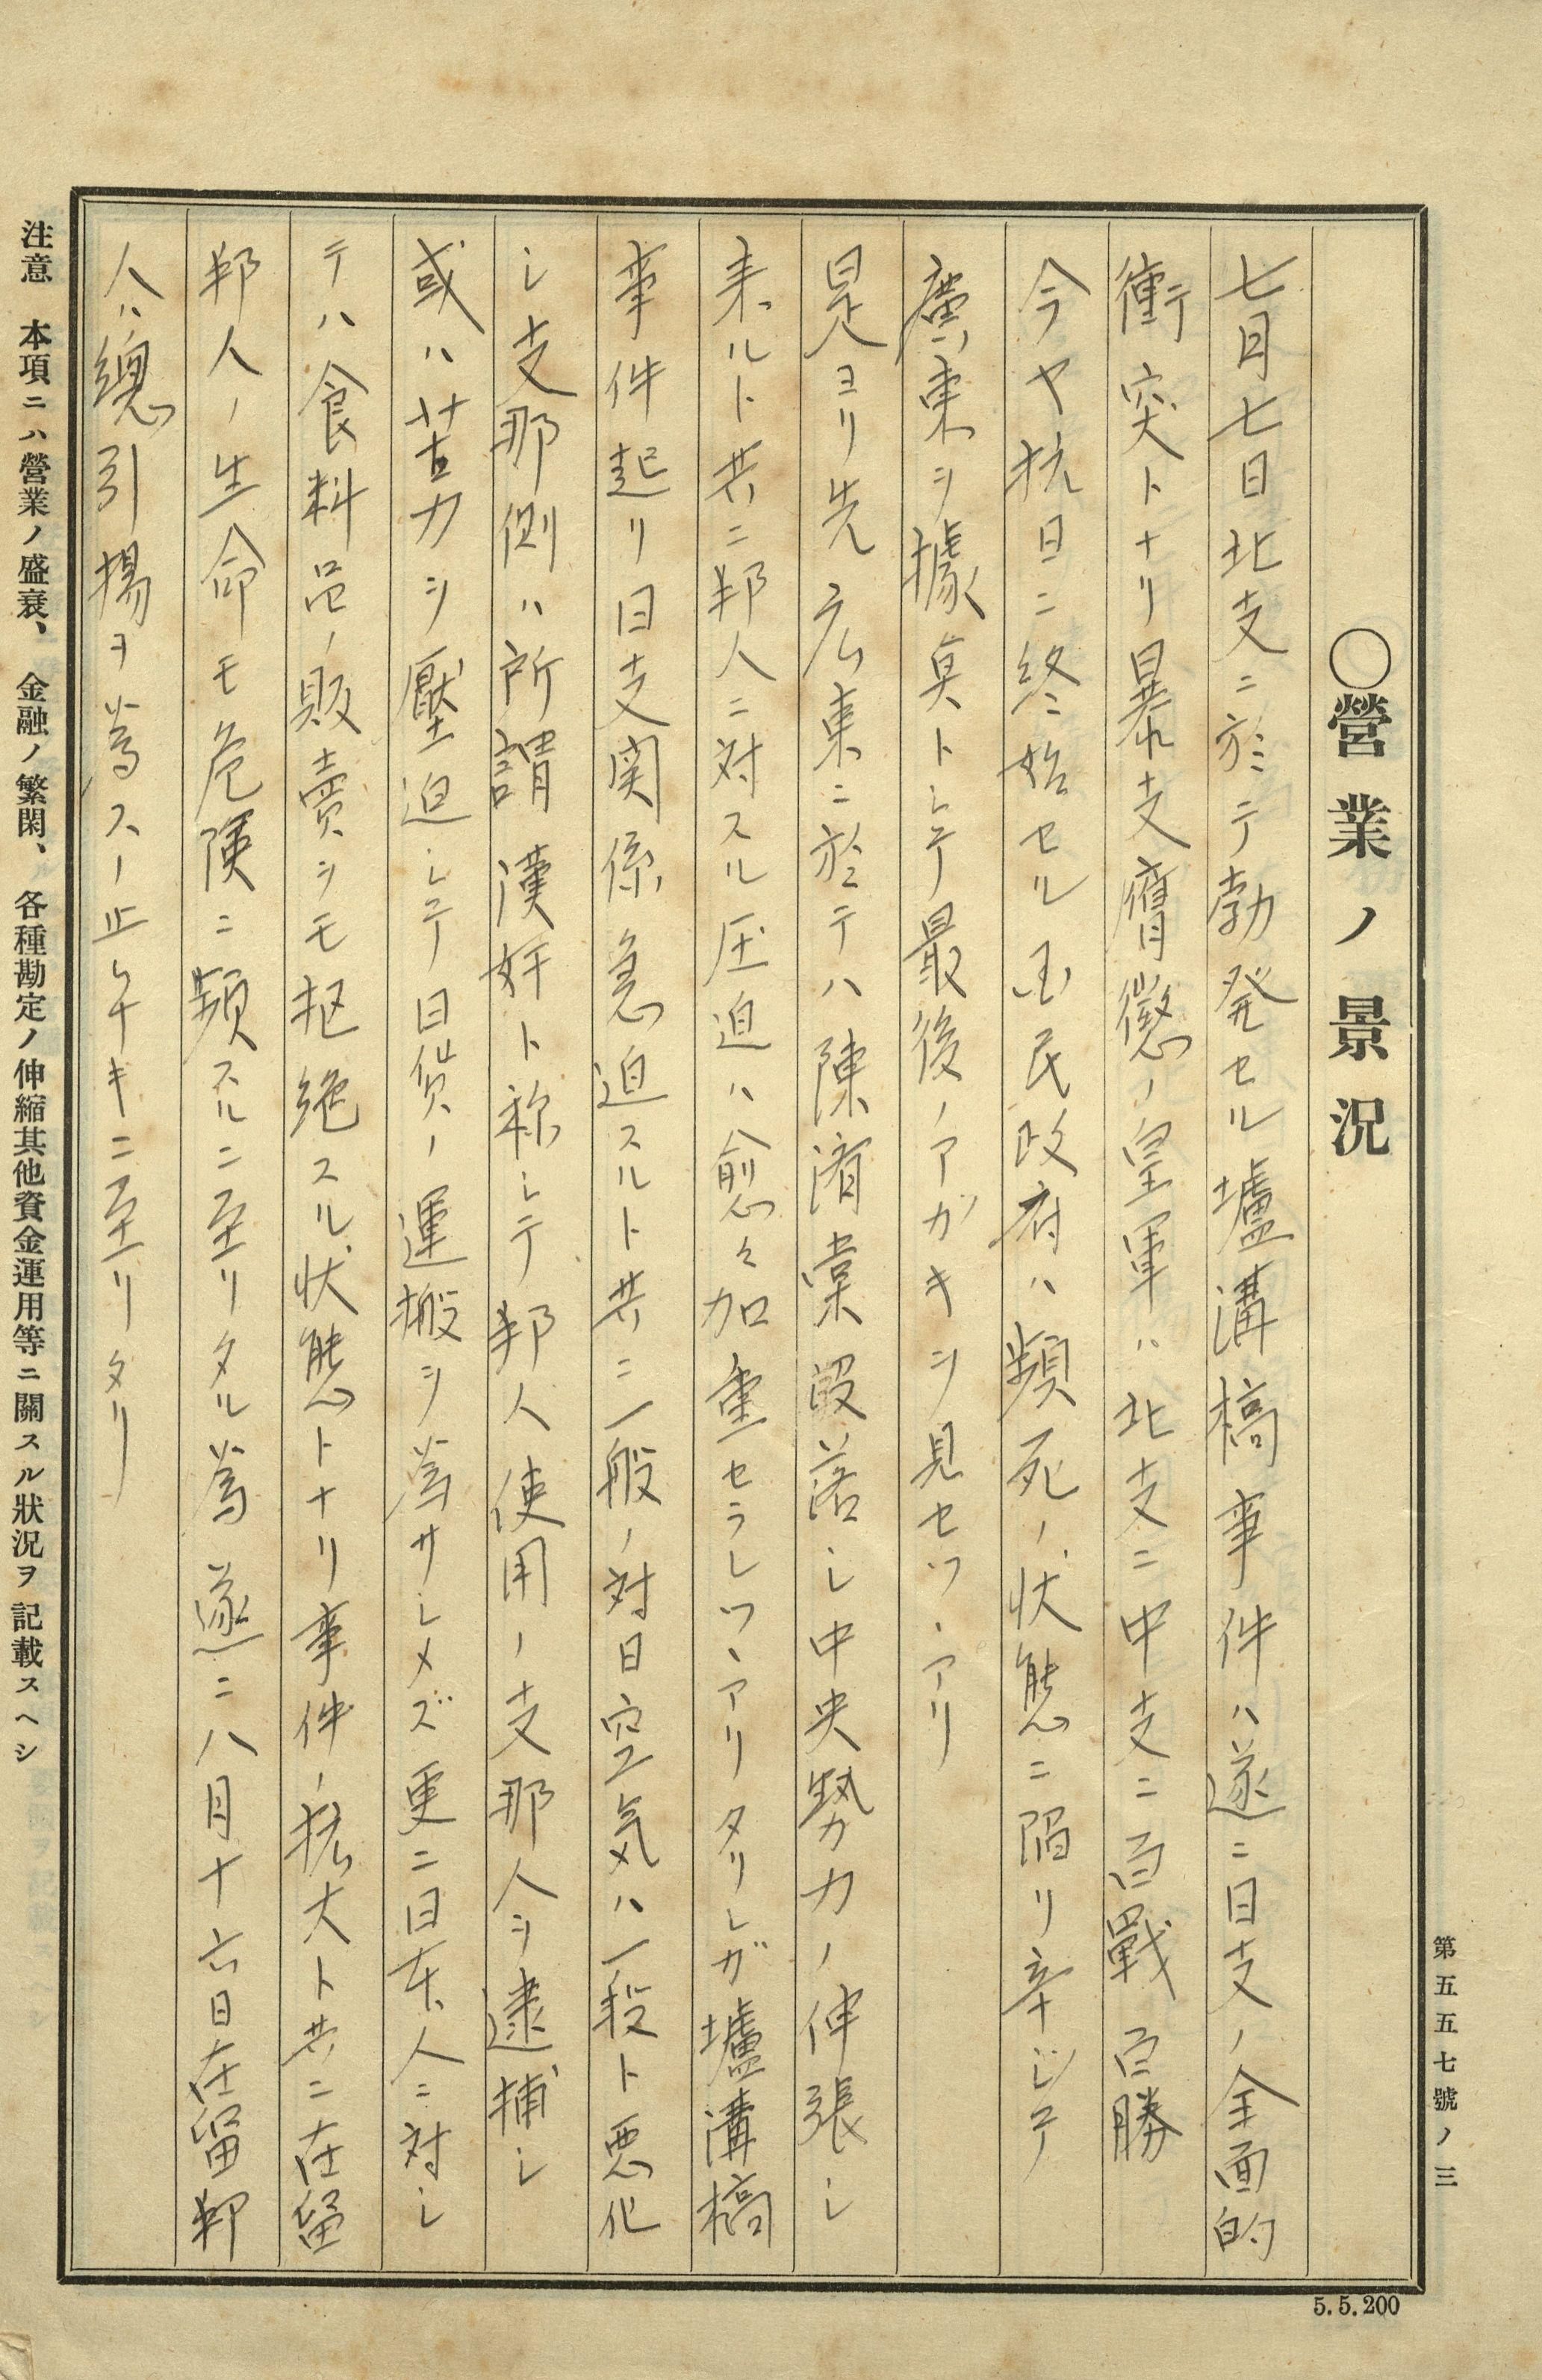 第五五七號ノ三
○營業ノ景況
七月七日北支ニ於テ勃発セル墟溝橋事件ハ遂ニ日支ノ全面的
衝突トナリ暴支膺懲ノ皇軍ハ北支ニ中支ニ百戰百勝
今ヤ抗日ニ終始セル国民政府ハ頻死ノ状態ニ陥リ辛ジテ
廣東ヲ據点トシテ最後ノアガキヲ見セツヽアリ
是ヨリ先広東ニ於テハ陳済棠没落シ中央勢力ノ伸張シ
来ルト共ニ邦人ニ対スル圧迫ハ愈々加重セラレツヽアリタリシガ墟溝橋
事件起リ日支関係急迫スルト共ニ一般ノ対日空気ハ一段ト悪化
シ支那側ハ所謂漢奸ト称シテ邦人使用ノ支那人ヲ逮捕シ
或ハ苦力ヲ壓迫シテ日貨ノ運搬ヲ為サシメズ更ニ日本人ニ対シ
テハ食料品ノ販賣ヲモ拒絶スル状態トナリ事件ノ拡大ト共ニ在留
邦人ノ生命モ危険ニ頻スルニ至リタル為遂ニ八月十六日在留邦
人ハ總引揚ヲ為スノ止ムナキニ至リタリ
注意 本項ニハ營業ノ盛衰、金融ノ繁閑、各種勘定ノ伸縮其他資金運用等ニ關スル狀況ヲ記載スヘシ
5.5.200